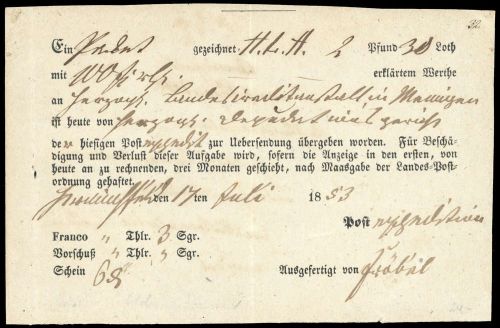 32
Ein Packet gezeichnet H.L.A. 2 Pfund 30 Loth
mit 100 f rh. erklärtem Werthe
an Herzogl. Landescreditanstalt in Meiningen
ist heute von Herzogl.
der hiesigen Postexpedit zur Uebersendung übergeben worden. Für Beschä-
digung und Verlust dieser Aufgabe wird, sofern die Anzeige in den ersten, von
heute an zu rechnenden, drei Monaten geschieht, nach Maasgabe der Landes-Post-
ordnung gehaftet.
den 17ten Juli 1853
Postexpedition
Franco " Thlr. 3 Sgr.
Vorschuß " Thlr. " Sgr.
Schein 6
Ausgefertigt von Fröbel